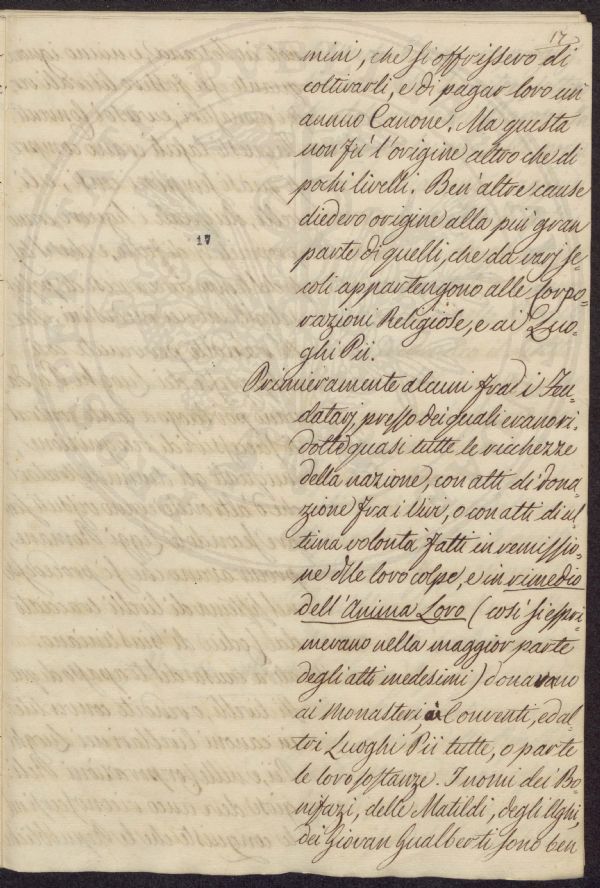 17
mini, che si offrissero di
coltivarli, e di pagar loro un
annuo Canone. Ma questa
non fù l'origine altro che di
pochi livelli. Ben'altre cause
diedero origine alla più gran
parte di quelli, che da varj se=
coli appartengono alle Corpo=
razioni Religiose, e ai Luo=
ghi Pii.
17
Primieramente alcuni fra i Feu=
datarj, presso dei quali erano ri=
dotte quasi tutte le ricchezze
della nazione, con atti di dona=
zione fra i Vivi, o con atti di ul=
tima volontà fatti in remissio=
ne delle loro colpe, e in remedio
dell'Anima Loro (così si espri=
mevano nella maggior parte
degli atti medesimi) donavano
ai Monasteri, ai Conventi, ed al=
tri Luoghi Pii tutte, o parte
le loro sostanze. I nomi dei Bo=
nifazi, delle Matildi, degli Ughi,
dei Giovan Gualberti sono ben